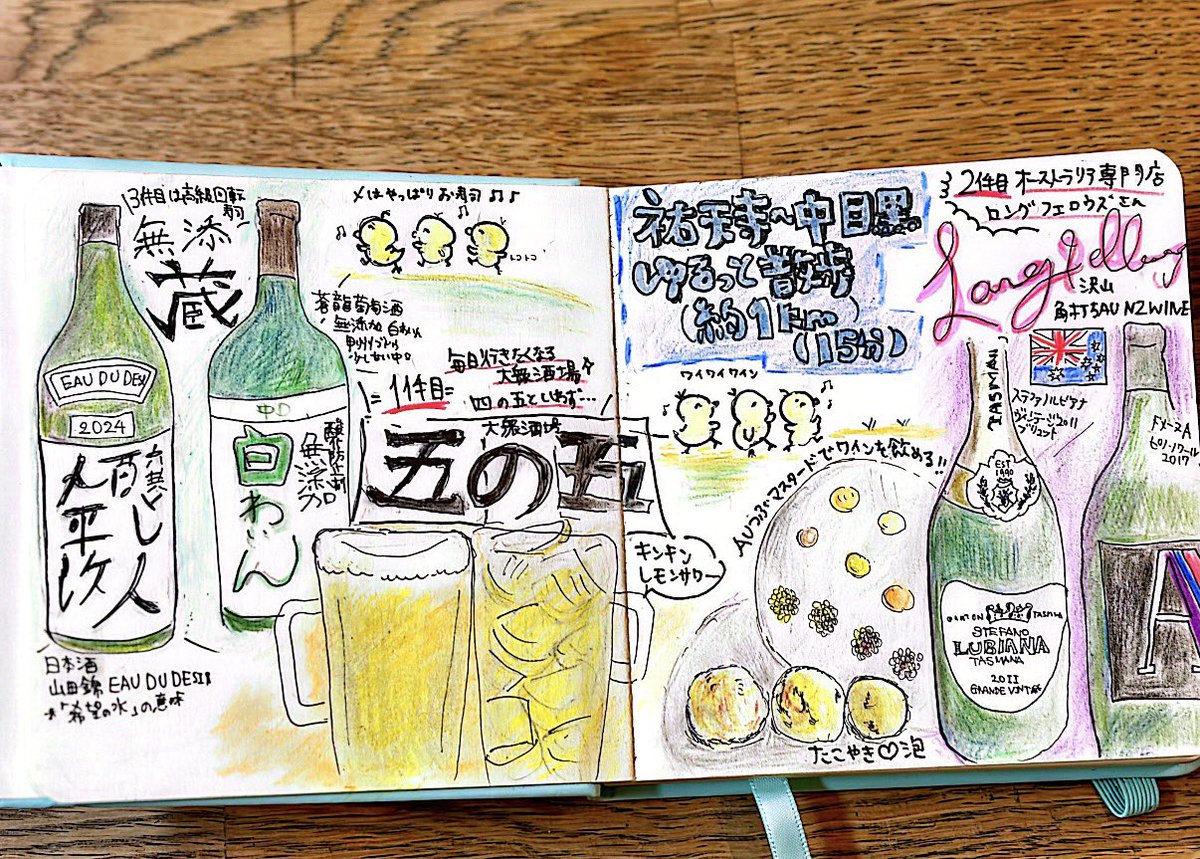 3件目は高級回転
寿司
無添
蔵
〆はやっぱりお寿司♪♪
トコトコ
蒼龍葡萄酒
無添加 白わいん
EAU DU DESIR
2024
醸し人
九平次
中口
白わいん
酸化防止剤
無添加
日本酒
山田錦 EAU DU DESIR
「希望の水」の意味
毎日行きたくなる
大衆酒場
1件目
四の五といわず…
大衆酒場
五の五
キンキン
レモンサワー
祐天寺〜中目黒
ゆるっと散歩
(約1km)
(15分)
ワイワイワイン
2件目 オーストラリア専門店
ロングフェロウズさん
Longfellows
沢山
角打ちAU NZ WINE
Auつぶマスタードでワインを飲める!!
たこやき♡泡
TASMAN
EST
STEFANO
LUBIANA
TASMANA
2011
GRANDE VINTAGE
ステファノルビアナ
ヴィンテージ2011
ブリュット
ピノノワール
2017
A